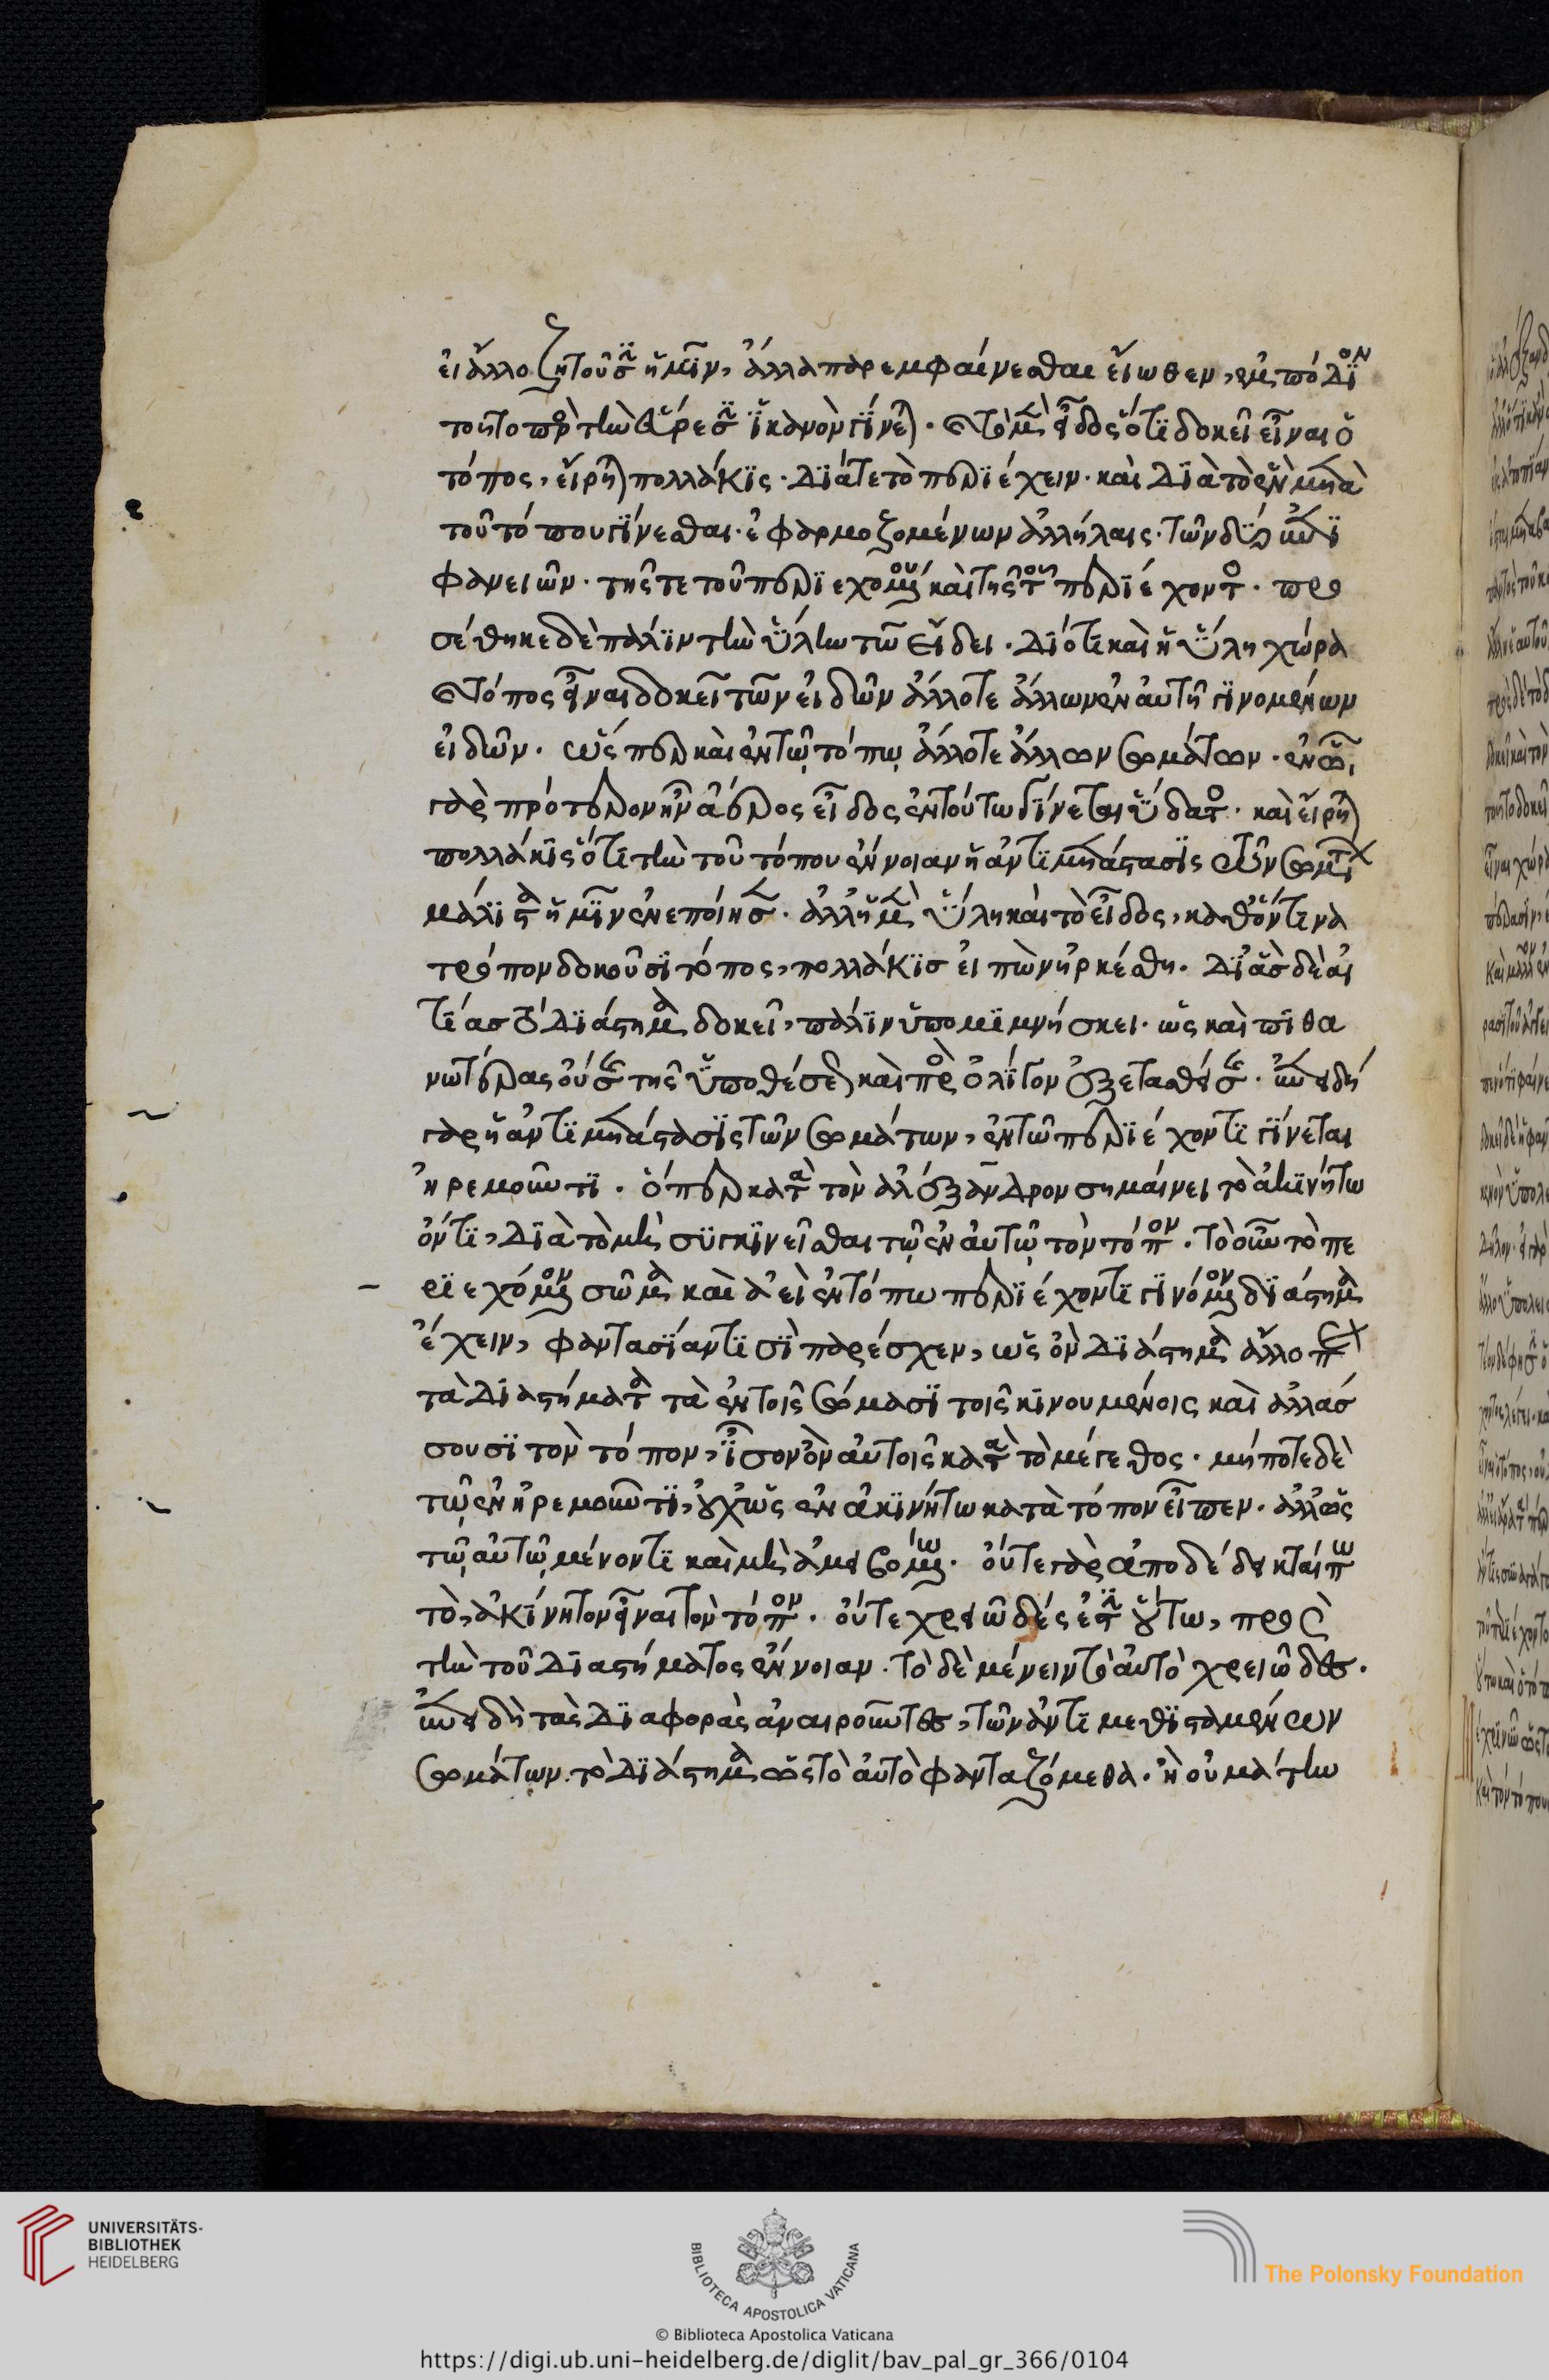 εἰ ἄλλο ζητοῦσιν ἡμῖν, ἀλλὰ παρεμφαίνεσθαι εἴωθεν, ἐμπόδιον
τοῦτο πρὸς τὴν εὕρεσιν ἱκανὸν γίνεται. τὸ μὲν εἶδος ὅτι δοκεῖ εἶναι ὁ
τόπος, εἴρηται πολλάκις. διά τε τὸ περιέχειν. καὶ διὰ τὸ ἓν μετὰ
τοῦ τόπου γίνεσθαι. ἐφαρμοζομένων ἀλλήλαις. τῶν δύο ἐπι
φανειῶν. τῆς τε τοῦ περιεχομένου καὶ τῆς τοῦ περιέχοντος. προ
σέθηκε δὲ πάλιν τὴν ὕλην τῷ εἴδει. διότι καὶ ἡ ὕλη χώρα
τόπος εἶναι δοκεῖ τῶν εἰδῶν ἄλλοτε ἄλλων ἐν αὐτῇ γινομένων
εἰδῶν. ὥσπερ καὶ ἐν τῷ τόπῳ ἄλλοτε ἄλλων σωμάτων. ἐν ᾧ
γὰρ πρότερον ἦν ἀέρος εἶδος ἐν τούτω γίνεται ὕδατος. καὶ εἴρηται
πολλάκις ὅτι τὴν τοῦ τόπου ἔννοιαν ἡ ἀντιμετάστασις τῶν σωμάτων
μάλιστα ἡμῖν ἐνεποίησεν. ἀλλ' ἡ μὲν ὕλη καὶ τὸ εἶδος, καθ' ὅντινα
τρόπον δοκοῦσι τόπος, πολλάκις εἰπὼν ἠρκέσθη. δι' ἃς δὲ αἰ
τίας τὸ διάστημα δοκεῖ, πάλιν ὑπομιμνήσκει. ὡς καὶ πιθα
νωτέρας οὔσης τῆς ὑποθέσεως καὶ πρὸς ὀλίγον ἐξετασθείσης. ἐπειδὴ
γὰρ ἡ ἀντιμετάστασις τῶν σωμάτων, ἐν τῷ περιέχοντι γίνεται
ἠρεμοῦντι. ὅπερ κατὰ τὸν ἀλέξανδρον σημαίνει τὸ ἀκινήτω
ὄντι, διὰ τὸ μὴ συγκινεῖσθαι τῷ ἐν αὐτῷ τὸν τόπον. τὸ οὖν τὸ πε
ριεχόμενον σῶμα καὶ ἀεὶ ἐν τόπω περιέχοντι γινόμενον διάστημα
ἔχειν, φαντασίαν τισὶ παρέσχεν, ὡς ὂν διάστημα ἄλλο παρὰ
τὰ διαστήματα τὰ ἐν τοῖς σώμασι τοῖς κινουμένοις καὶ ἀλλάσ
σουσι τὸν τόπον, ἴσον ὂν αὐτοῖς κατὰ τὸ μέγεθος. μήποτε δὲ
τῷ ἐν ἠρεμοῦντι, οὐχ ὡς ἐν ἀκινήτω κατὰ τόπον εἶπεν. ἀλλ' ὡς
τῷ αὐτῷ μένοντι καὶ μὴ ἀμειβομένω. οὔτε γὰρ ἀποδέδεικταί πω
τὸ, ἀκίνητον εἶναι τὸν τόπον. οὔτε χρειῶδές ἐστιν οὕτω, πρὸς
τὴν τοῦ διαστήματος ἔννοιαν. τὸ δὲ μένειν τὸ αὐτὸ χρειῶδες.
ἐπειδὴ τὰς διαφορὰς ἀναιροῦντες, τῶν ἀντιμεθισταμένων
σωμάτων. τὸ διάστημα ὡς τὸ αὐτὸ φανταζόμεθα. ἢ οὐ μάτην
UNIVERSITÄTS-
BIBLIOTHEK
HEIDELBERG
BIBLIOTECA APOSTOLICA VATICANA
© Biblioteca Apostolica Vaticana
The Polonsky Foundation
https://digi.ub.uni-heidelberg.de/diglit/bav_pal_gr_366/0104